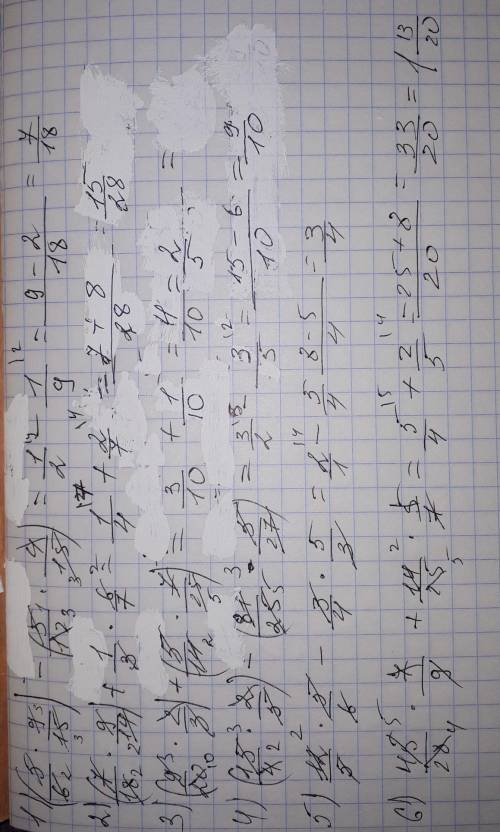 1) (5/6 · 9/15) − (5/12 · 4/15) = 1/2 − 1/9 = 9 − 2/18 = 7/18
2) (7/18 · 9/14) + 1/3 · 6/7 = 1/4 + 2/7 = 7 + 8/28 = 15/28
3) (9/20 · 2/3) + (5/14 · 7/25) = 3/10 + 1/10 = 4/10 = 2/5 =
4) (15/4 · 2/5) − (27/25 · 5/27) = 3/2 − 3/5 = 15 − 6/10 = 9/10
5) 12/5 · 5/6 − 3/4 · 5/3 = 2/1 − 5/4 8 − 5/4 = 3/4
6) 45/28 · 7/9 + 14/25 · 5/7 = 5/4 + 2/5 = 25 + 8/20 = 33/20 = 1 13/20